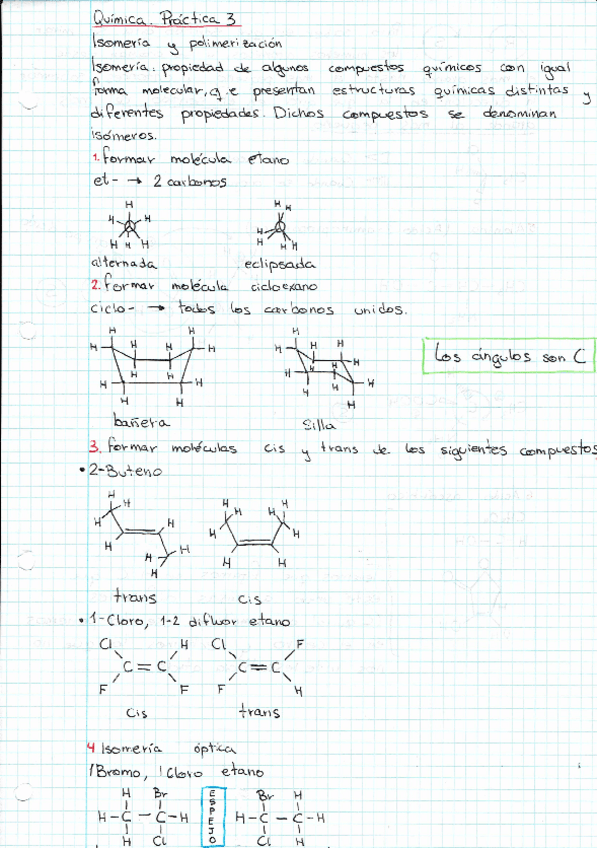 Química. Práctica 3
Isomería y polimerización
Isomería: propiedad de algunos compuestos químicos con igual
forma molecular, q.e presentan estructuras químicas distintas y
diferentes propiedades. Dichos compuestos se denominan
isómeros.
1. Formar molécula etano
et- → 2 carbonos
H H H H H H
H H H H H H
alternada eclipsada
2. Formar molécula cicloexano
ciclo- → todos los carbonos unidos.
Los ángulos son C
H H H H H H H H H H H H
H H H H H H H H H H H H
bañera Silla
3. Formar moléculas cis y trans de los siguientes compuestos
• 2-Buteno
H H H H H H H H
H H H H H H H H
trans cis
• 1-Cloro, 1-2 difluor etano
Cl H Cl F
C=C C=C
F F F H
cis trans
4 Isomería óptica
1Bromo, 1Cloro etano
H Br ESPEJO Br H
H-C-C-H H-C-C-H
H Cl Cl H